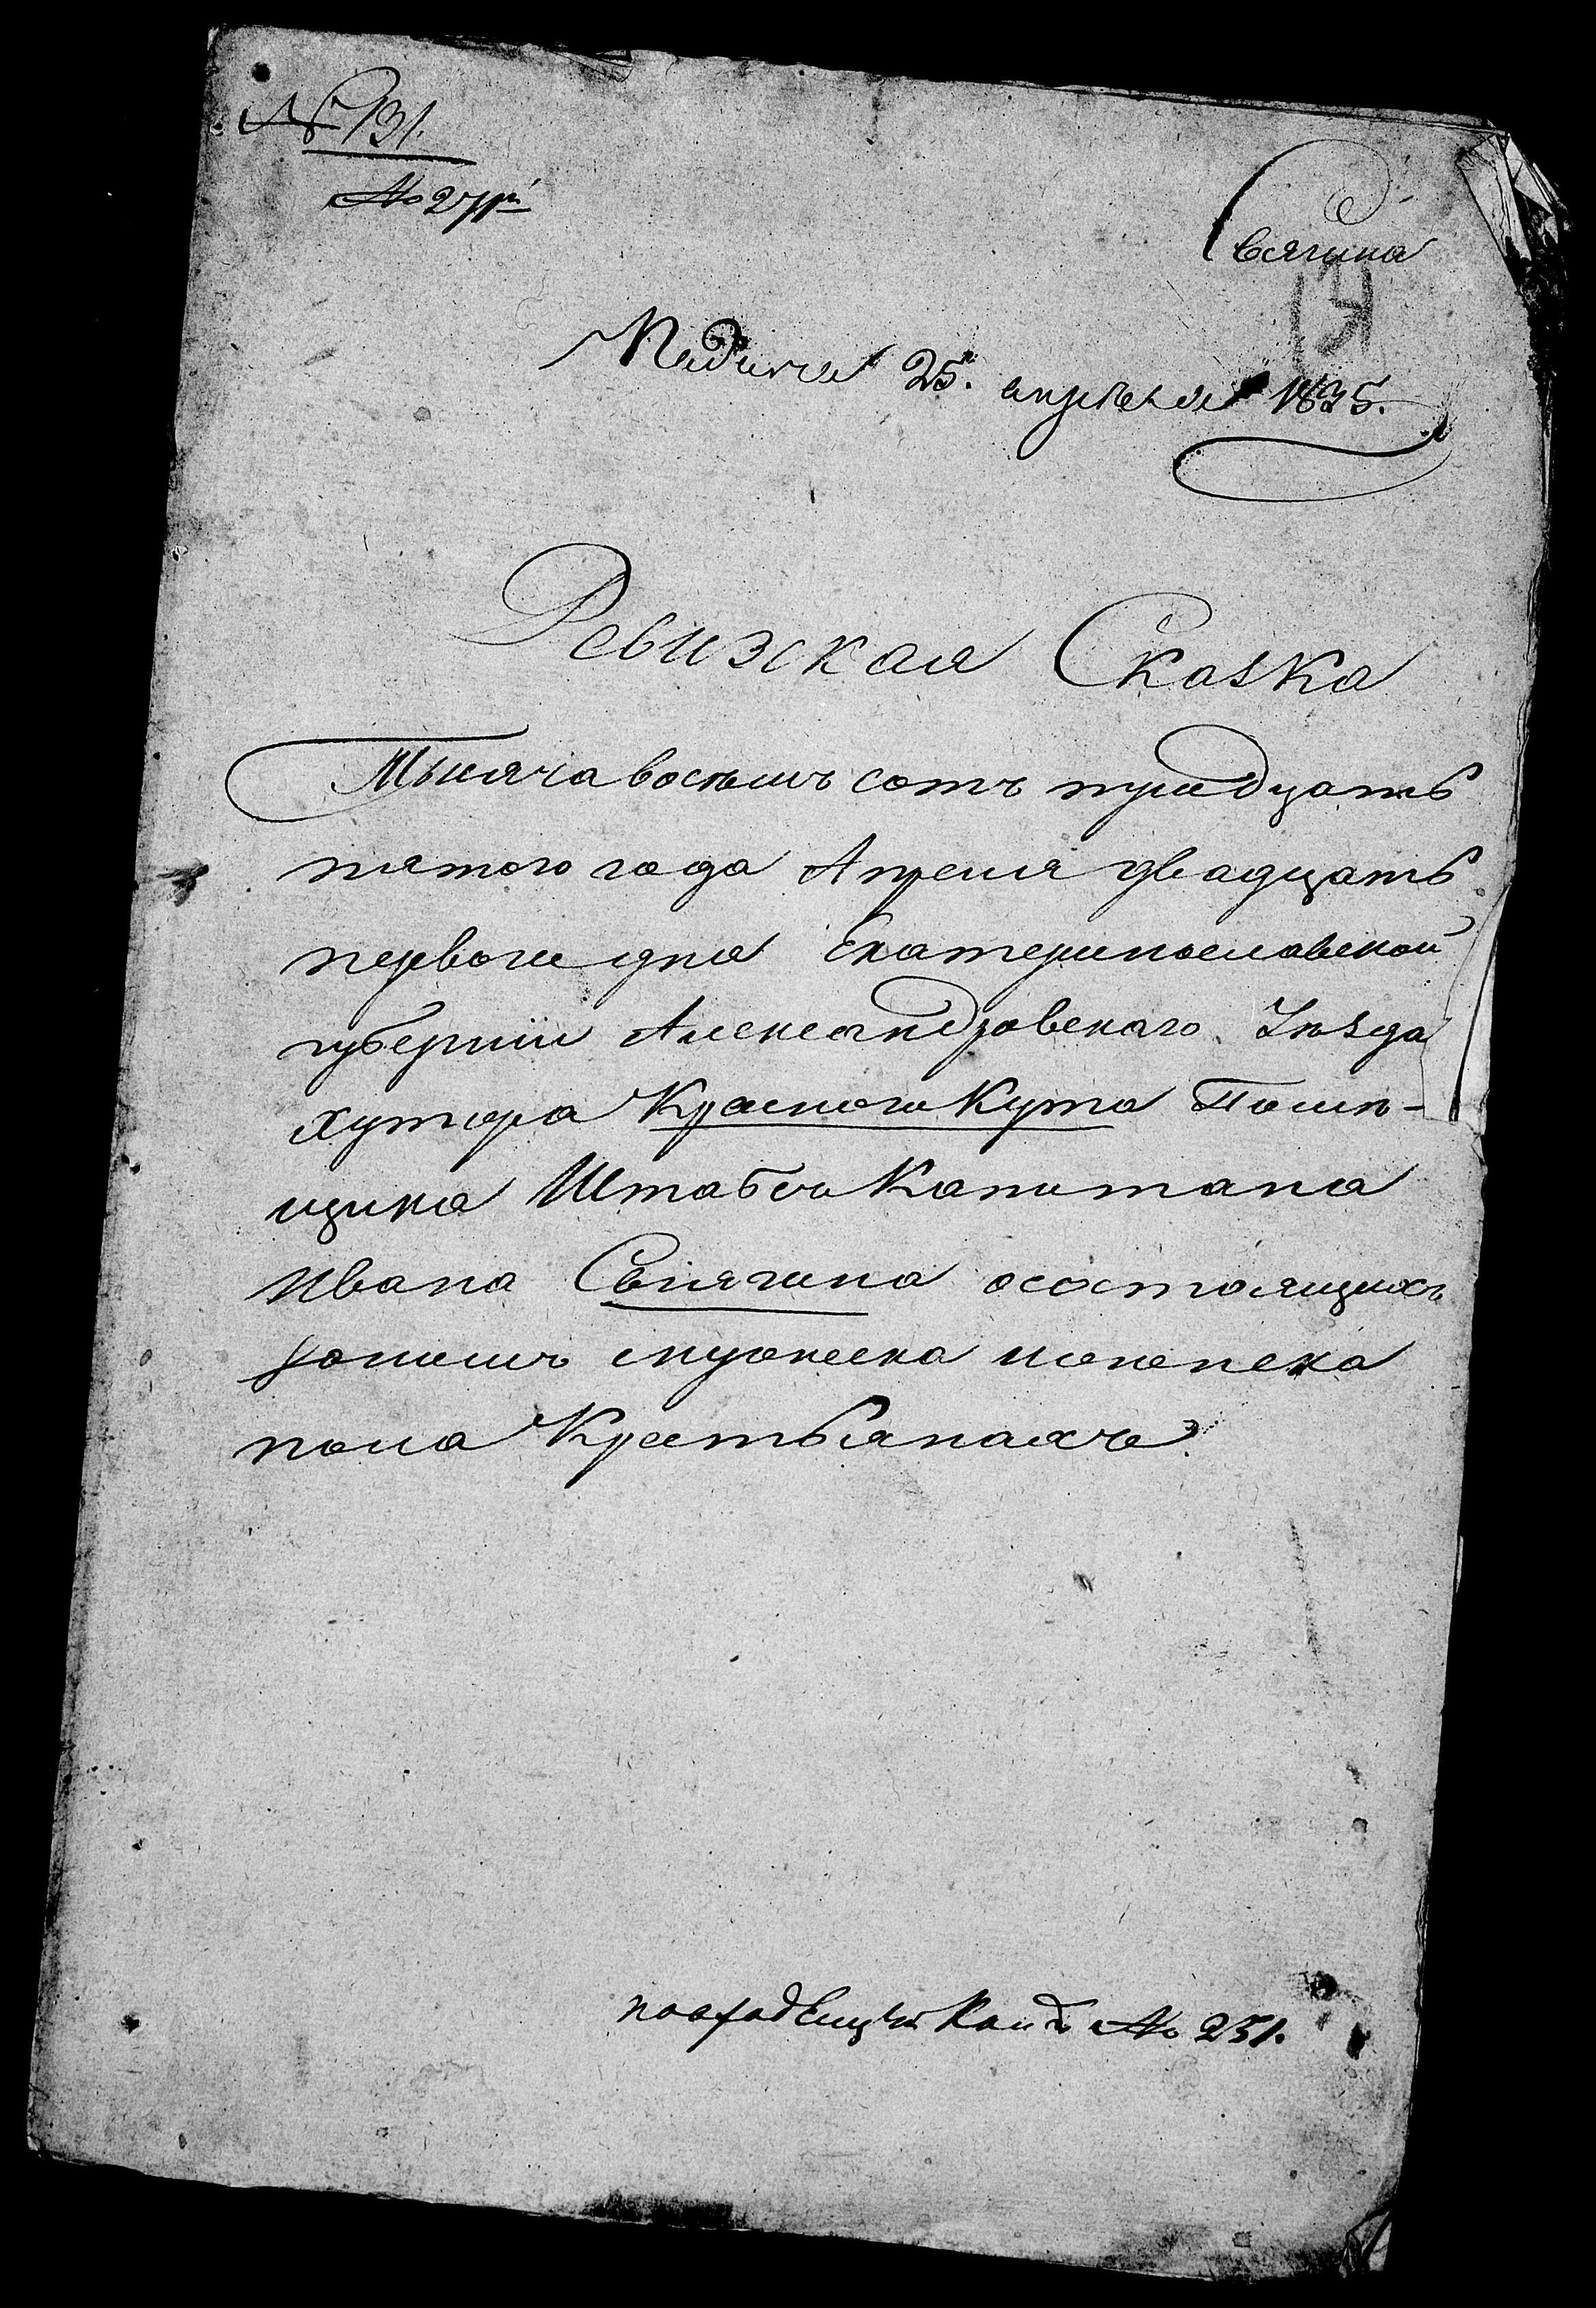 № 131.
№ 27й
Свягина
Подана 25. апреля 1835.
Ревизская Сказка
Тысяча восемь сотъ тридцать
пятого года Апреля двадцать
первого дня Екатеринославской
губернии Александровскаго Уѣзда
хутора Красного Кута Помѣ-
щика Штабсъ Капитана
Ивана Свягина о состоящихъ
мужеска и женска
пола Крестьянахъ
№ 251.